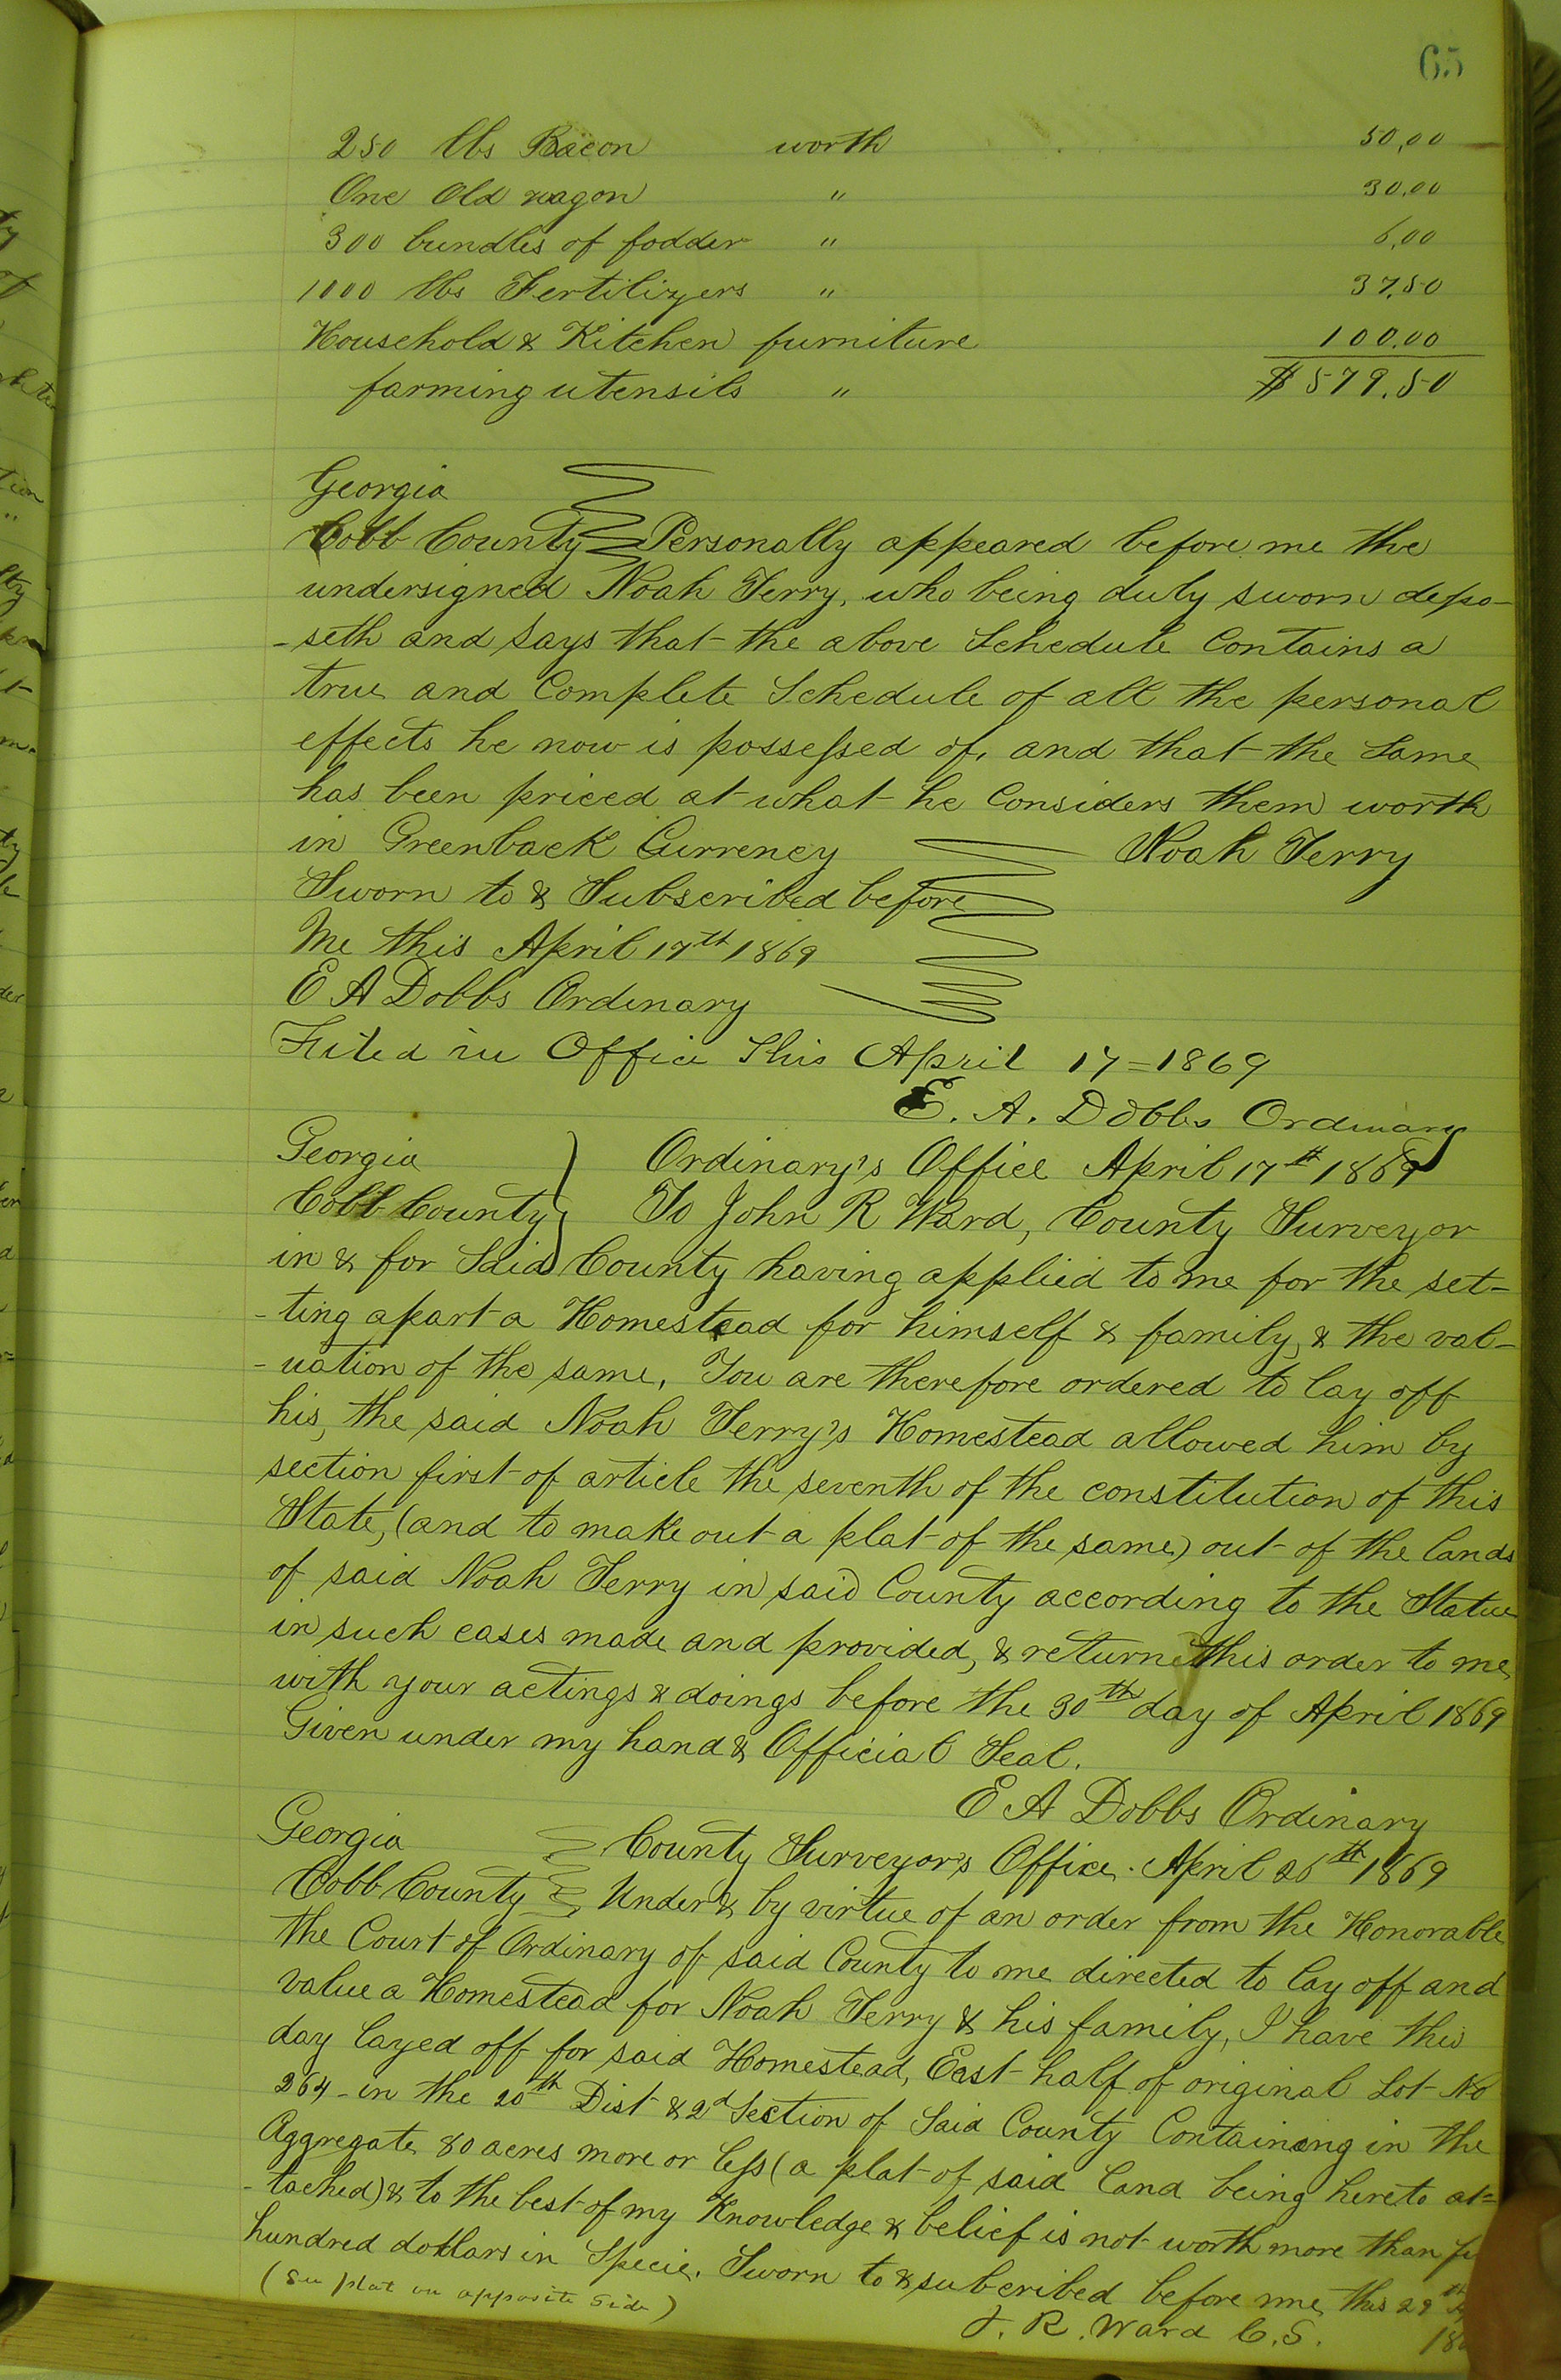 65
250 lbs Bacon worth 50,00
One Old wagon " 30,00
300 bundles of fodder " 6,00
1000 lbs Fertilizers " 37,50
Household & Kitchen furniture 100,00
farming utensils " $579.50
Georgia
Cobb County Personally appeared before me the
undersigned Noah Terry, who being duly sworn depo-
-seth and Says that the above Schedule Contains a
true and Complete Schedule of all the personal
effects he now is possessed of, and that the Same
has been priced at what he Considers them worth
in Greenback Currency Noah Terry
Sworn to & Subscribed before
Me this April 17th 1869
E A Dobbs Ordinary
Filed in Office This April 17=1869
E. A. Dobbs Ordinary
Georgia Ordinary's Office April 17th 1869
Cobb County To John R Ward, County Surveyor
in & for Said County having applied to me for the set-
-ting apart a Homestead for himself & family, & the val-
-uation of the same, You are therefore ordered to lay off
his, the said Noah Terry's Homestead allowed him by
section first of article the seventh of the constitution of this
State, (and to make out a plat of the same) out of the lands
of said Noah Terry in said County according to the Statue
in such cases made and provided, & return this order to me
with your actings & doings before the 30th day of April 1869
Given under my hand & Official Seal.
E A Dobbs Ordinary
Georgia County Surveyor's Office. April 26th 1869
Cobb County Under & by virtue of an order from the Honorable
the Court of Ordinary of said County to me directed to lay off and
value a Homestead for Noah Terry & his family, I have this
day layed off for said Homestead, East half of original Lot No
264 in the 20th Dist & 2d Section of Said County Containing in the
Aggregate 80 acres more or less (a plat of said land being hereto at=
-tached) & to the best of my Knowledge & belief is not worth more than
hundred dollars in Specie. Sworn to & subcribed before me this 29th
(See plat on opposite side) J. R. Ward C.S.